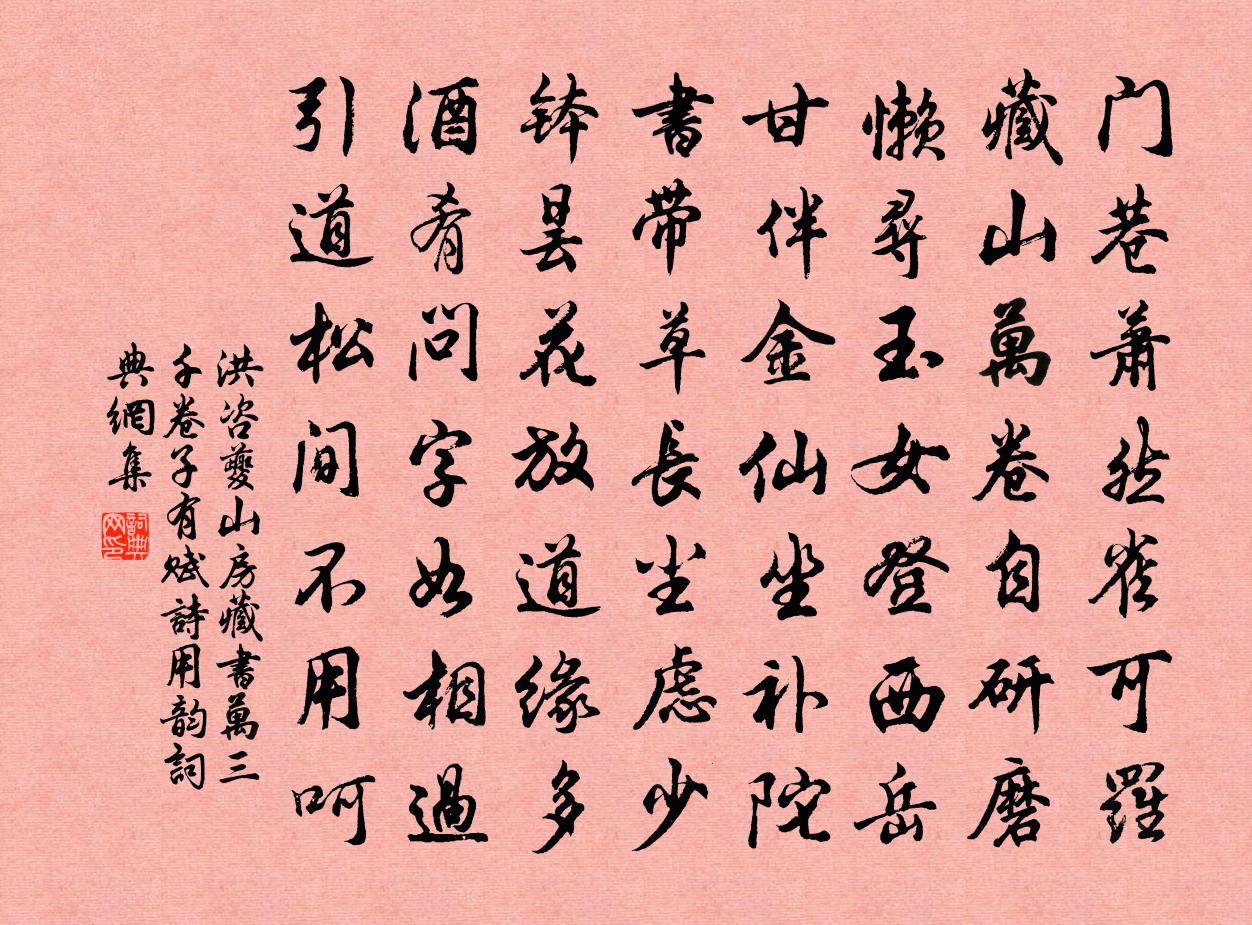 门巷萧然雀可羅
藏山萬卷自研磨
懒尋玉女登西岳
甘伴金仙坐补陀
書带草長尘虑少
钵昙花放道缘多
酒肴问字如相過
引道松间不用呵
洪咨夔山房藏書萬三
千卷子有赋詩用韵詞
典網集
詞典
网印